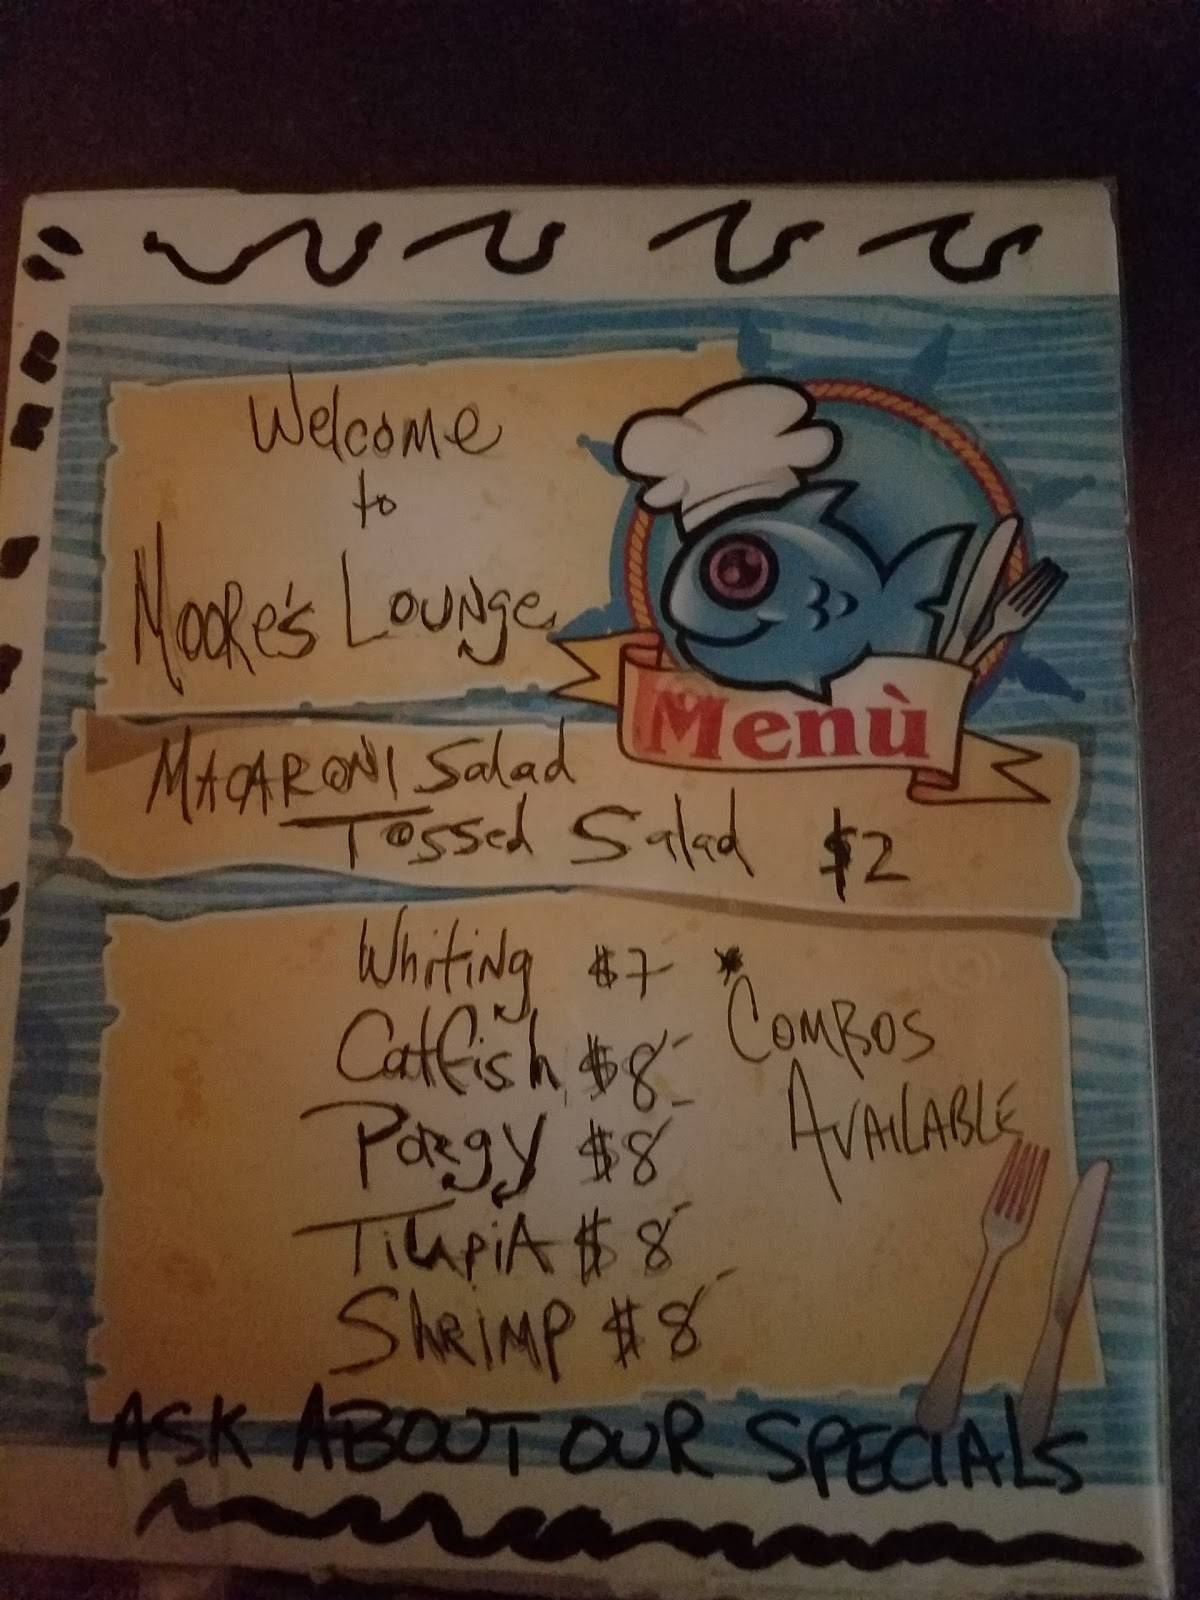 Welcome
to
Moore's Lounge
Menù
Macaroni Salad
Tossed Salad $2
Whiting $7
Catfish $8
Porgy $8
Tilapia $8
Shrimp $8
* Combos
Available
ASK ABOUT OUR SPECIALS